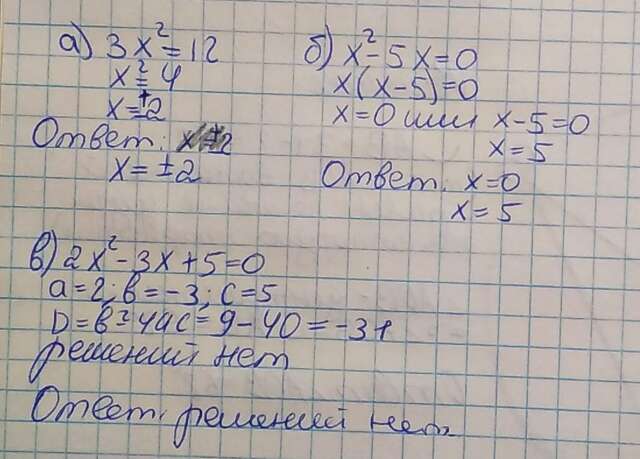 а) 3x² = 12
x² = 4
x = ±2
Ответ:
x = ±2
б) x² - 5x = 0
x(x-5) = 0
x = 0 или x - 5 = 0
x = 5
Ответ: x = 0
x = 5
в) 2x² - 3x + 5 = 0
a = 2; b = -3; c = 5
D = b² - 4ac = 9 - 40 = -31
решений нет
Ответ: решений нет